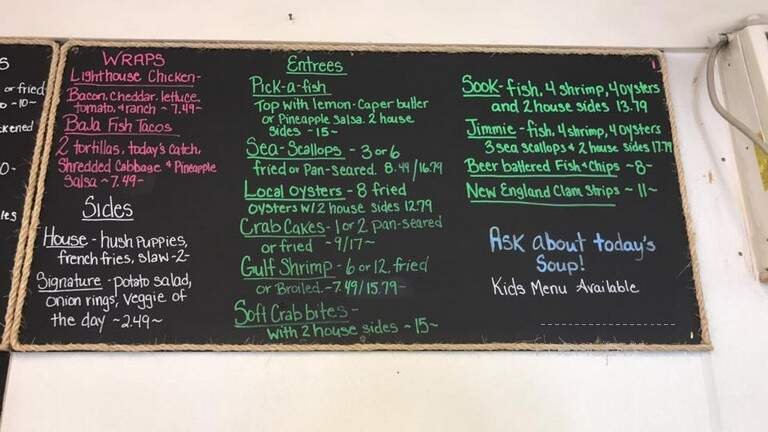 or fried
~10~
WRAPS
Lighthouse Chicken-
Bacon, Cheddar, lettuce
tomato, & ranch ~ 7.49~
Baja Fish Tacos
2 tortillas, today's catch,
Shredded Cabbage & Pineapple
Salsa ~ 7.49~
Sides
House - hush puppies,
french fries, slaw -2-
Signature - potato salad,
onion rings, veggie of
the day ~2.49~
Entrees
Pick-a-fish
Top with lemon-caper butter
or Pineapple Salsa. 2 house
sides ~15~
Sea-Scallops - 3 or 6
fried or Pan-seared. 8.49/16.79
Local oysters - 8 fried
oysters w/ 2 house sides 12.79
Crab Cakes - 1 or 2 pan-seared
or fried ~9/17~
Gulf Shrimp - 6 or 12, fried
or Broiled. ~7.49/15.79~
Soft Crab bites -
with 2 house sides ~ 15~
Sook - fish, 4 shrimp, 4 oysters
and 2 house sides 13.79
Jimmie - fish, 4 shrimp, 4 oysters
3 sea scallops & 2 house sides 17.79
Beer battered Fish & Chips ~8~
New England Clam Strips ~ 11~
Ask about today's
Soup!
Kids Menu Available